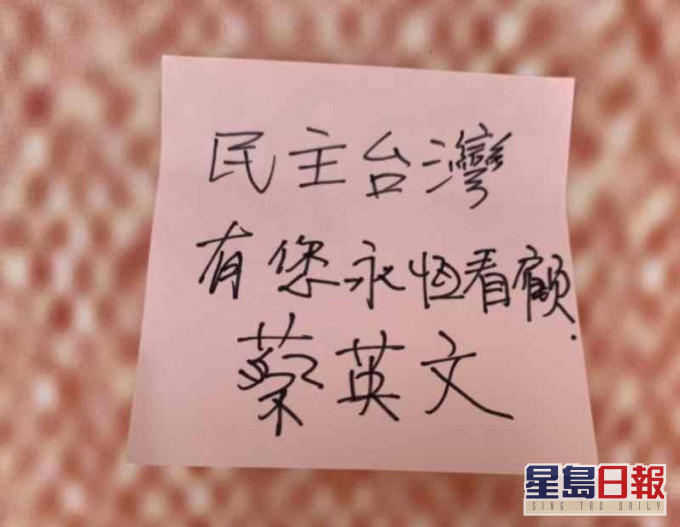 民主台灣
有您永恆看顧.
蔡英文
星島日報
SING TAO DAILY